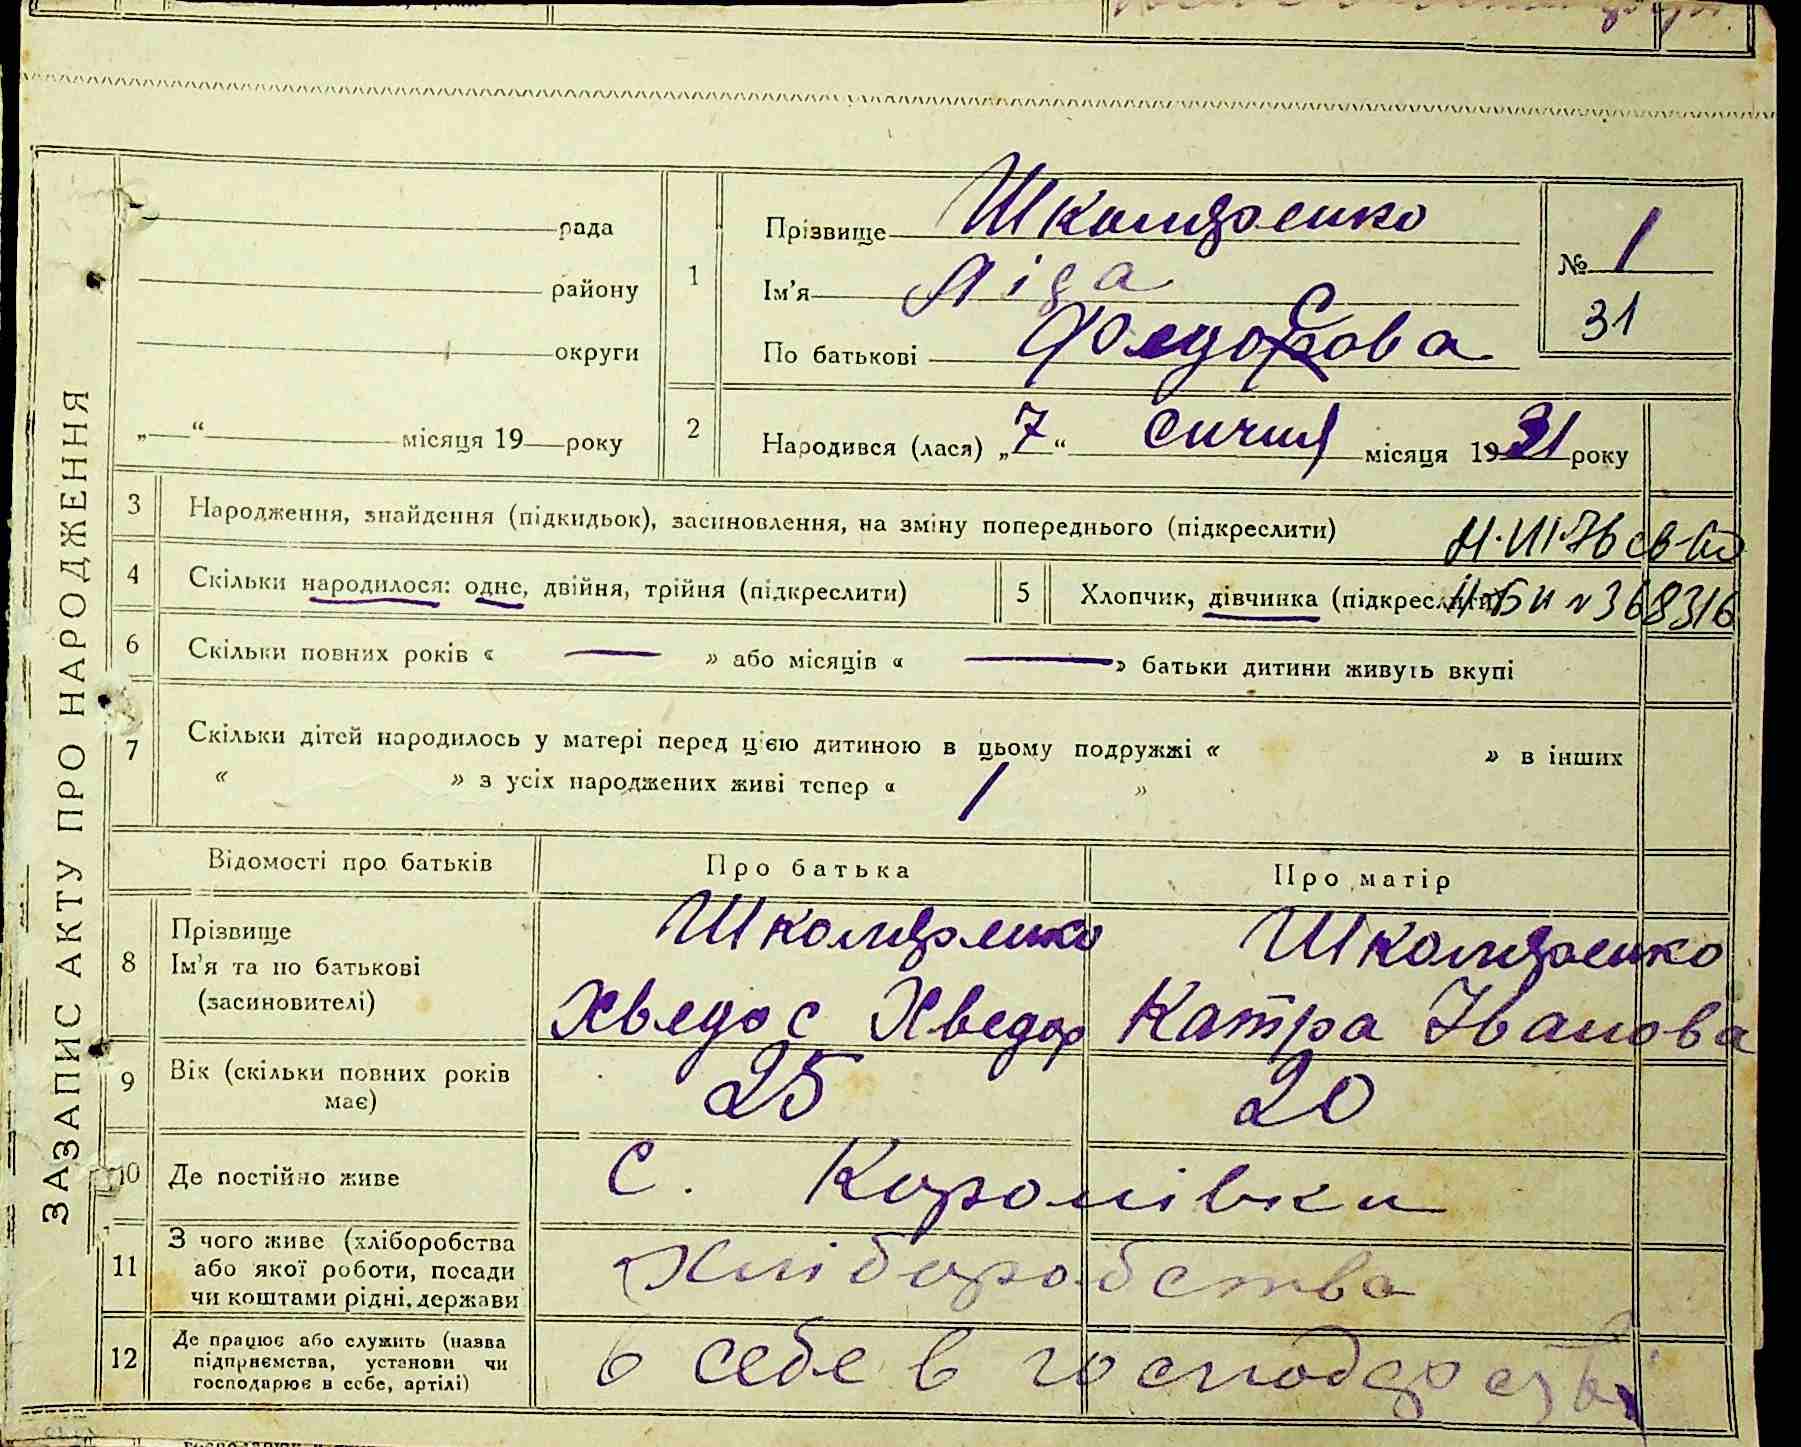 ЗАЗАПИС АКТУ ПРО НАРОДЖЕННЯ
рада
району
округи
„ “ місяця 19 року
1
Прізвище Школяренко
Ім'я Ліда
По батькові Федосова
№ 1
31
2
Народився (лася) „7“ січня місяця 1931 року
3 Народження, знайдення (підкидьок), засиновлення, на зміну попереднього (підкреслити)
4 Скільки народилося: одне, двійня, трійня (підкреслити)
5 Хлопчик, дівчинка (підкреслити)
№ 368316
6 Скільки повних років « — » або місяців « — » батьки дитини живуть вкупі
7 Скільки дітей народилось у матері перед цією дитиною в цьому подружжі « » в інших
« » з усіх народжених живі тепер « 1 »
Відомості про батьків
Про батька
Про матір
8 Прізвище
Ім'я та по батькові
(засиновителі)
Школяренко
Хведос Хведор
Школяренко
Катра Іванова
9 Вік (скільки повних років має)
25
20
10 Де постійно живе
с. Королівка
11 З чого живе (хліборобства
або якої роботи, посади
чи коштами рідні, держави
хліборобства
12 Де працює або служить (назва
підприємства, установи чи
господарює в себе, артілі)
в себе в господарстві